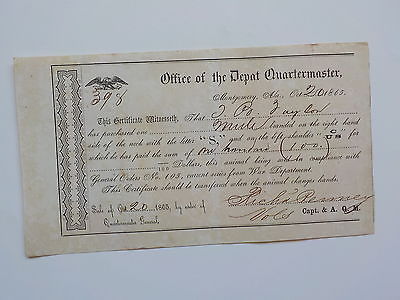 Office of the Depat Quartermaster,
Montgomery, Ala., Oct 20 1865.
398
This Certificate Witnesseth, That J. B. Taylor
has purchased one Mule branded on the right hand
side of the neck with the letter "S," and on the left shoulder "US" for
which he has paid the sum of One hundred (100)
100 Dollars, this animal being sold in compliance with
General Orders No. 103, current series from War Department.
This Certificate should be transferred when the animal changes hands.
Sale of Oct. 20 1865, by order of
Quartermaster General.
Vols Capt. & A. Q. M.